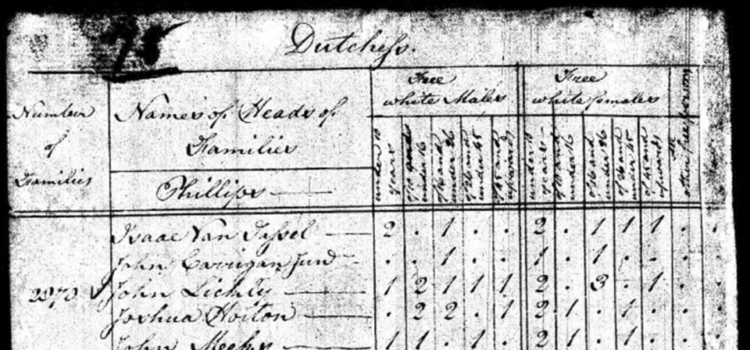 75
Dutchess.
Number of Families
Names of Heads of Families
Free white Males
Free white females
Phillips
under 10 years
of 10 and under 16
of 16 and under 26
of 26 and under 45
of 45 and upwards
under 10 years
of 10 and under 16
of 16 and under 26
of 26 and under 45
of 45 and upwards
Isaac Van Tassel 2 . 1 . . 2 . 1 1 1 . .
John Carrigan Junr . . 1 . . 1 . 1 . . . .
2970 John Lickly 1 2 1 1 1 2 . 3 . 1 . .
Joshua Horton . 2 2 . 1 2 1 . 1 . . .
John Meeks 1 1 . 1 . 2 1 . 1 . .